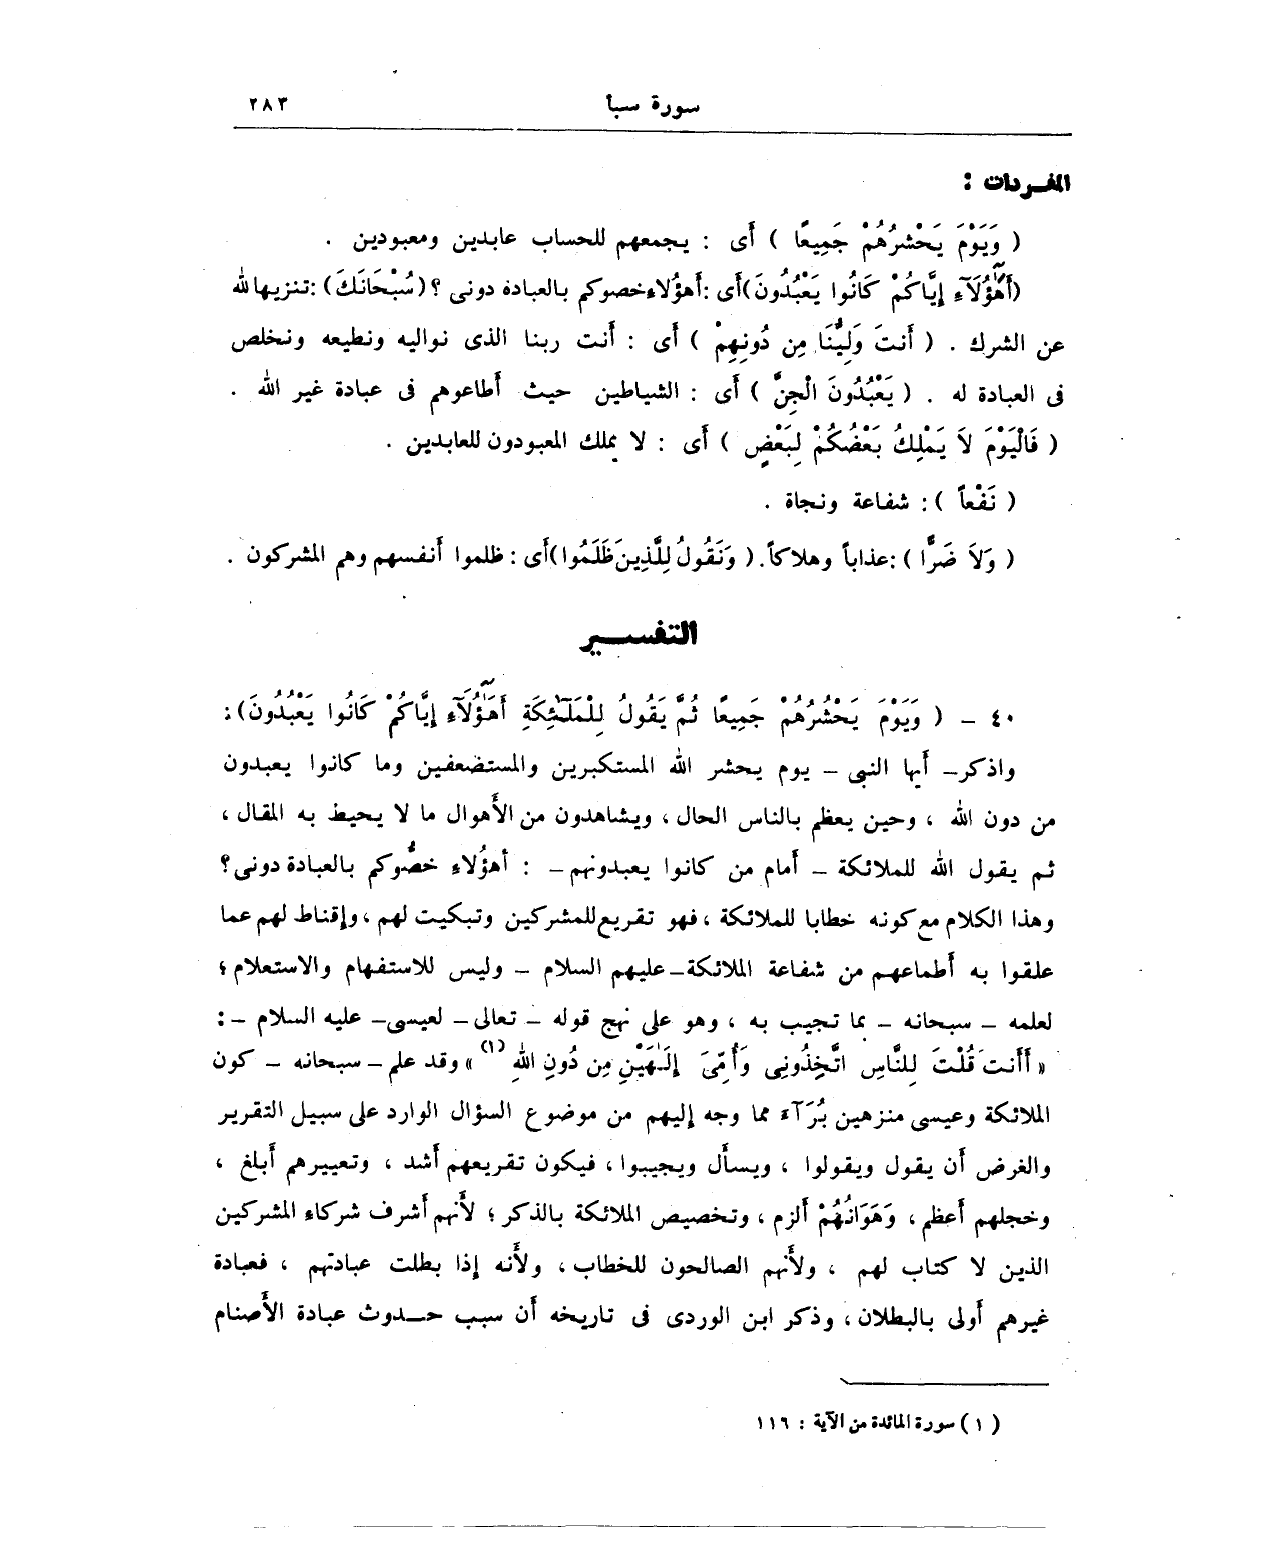 سورة سبأ ٢٨٣
المفردات :
( وَيَوْمَ يَحْشرُهُمْ جَمِيعًا ) أَى : يجمعهم للحساب عابدين ومعبودين .
(أَهَٰٓؤُلَآءِ إِيَّاكُمْ كَانُوا يَعْبُدُونَ)أَى :أَهؤُلاءِ خصوكم بالعبادة دونى ؟ (سُبْحَانَكَ) :تنزيها لله
عن الشرك . ( أَنتَ وَلِيُّنَا مِن دُونِهِمْ ) أَى : أَنت ربنا الذى نواليه ونطيعه ونخلص
فى العبادة له . ( يَعْبُدُونَ الْجِنَّ ) أَى : الشياطين حيث أَطاعوهم فى عبادة غير الله .
( فَالْيَوْمَ لاَ يَمْلِكُ بَعْضُكُمْ لِبَعْضٍ ) أَى : لا يملك المعبودون للعابدين .
( نَفْعاً ) : شفاعة ونجاة .
( وَلاَ ضَرًّا ) :عذاباً وهلاكاً. ( وَنَقُولُ لِلَّذِينَ ظَلَمُوا)أَى : ظلموا أَنفسهم وهم المشركون .
التفســـير
٤٠ – ( وَيَوْمَ يَحْشُرُهُمْ جَمِيعًا ثُمَّ يَقُولُ لِلْمَلَـٰٓئِكَةِ أَهَـٰٓؤُلَآءِ إِيَّاكُمْ كَانُوا يَعْبُدُونَ) :
واذكر – أَيها النبى – يوم يحشر الله المستكبرين والمستضعفين وما كانوا يعبدون
من دون الله ، وحين يعظم بالناس الحال ، ويشاهدون من الأَهوال ما لا يحيط به المقال ،
ثم يقول الله للملائكة – أَمام من كانوا يعبدونهم – : أهؤُلاءِ خصُّوكم بالعبادة دونى ؟
وهذا الكلام مع كونه خطابا للملائكة ، فهو تقريع للمشركين وتبكيت لهم ، وإقناط لهم عما
علقوا به أَطماعهم من شفاعة الملائكة – عليهم السلام – وليس للاستفهام والاستعلام ؛
لعلمه – سبحانه – بما تجيب به ، وهو على نهج قوله – تعالى – لعيسى – عليه السلام – :
« أَأَنتَ قُلْتَ لِلنَّاسِ اتَّخِذُونِى وَأُمِّىَ إِلَـٰهَيْنِ مِن دُونِ اللهِ (١) » وقد علم – سبحانه – كون
الملائكة وعيسى منزهين بُرَآءَ مما وجه إليهم من موضوع السؤال الوارد على سبيل التقرير
والغرض أَن يقول ويقولوا ، ويسأَل ويجيبوا ، فيكون تقريعهم أَشد ، وتعييرهم أَبلغ ،
وخجلهم أَعظم ، وَهَوَانُهُمْ أَلزم ، وتخصيص الملائكة بالذكر ؛ لأَنهم أَشرف شركاء المشركين
الذين لا كتاب لهم ، ولأَنهم الصالحون للخطاب ، ولأَنه إذا بطلت عبادتهم ، فعبادة
غيرهم أَولى بالبطلان ، وذكر ابن الوردى فى تاريخه أَن سبب حــدوث عبادة الأَصنام
( ١ ) سورة المائدة من الآية : ١١٦